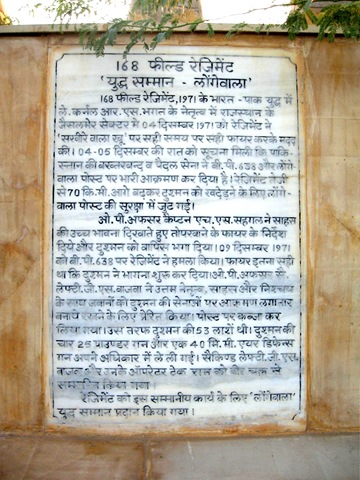 168 फील्ड रेजिमेंट
'युद्ध सम्मान - लोंगेवाला'
168 फील्ड रेजिमेंट, 1971 के भारत - पाक युद्ध में
ले. कर्नल आर. एस. भगत के नेतृत्व में राजस्थान के
जैसलमेर सेक्टर में 04 दिसम्बर 1971 को रेजिमेंट ने
वाला खू' पर सही समय पर सही फायर करके मदद
की। 04-05 दिसम्बर की रात को सूचना मिली कि पाकि-
स्तान की बख्तरबन्द व पैदल सेना ने बी.पी. 638 और लोंगे-
वाला पोस्ट पर भारी आक्रमण कर दिया है। रेजिमेंट तेजी
से 70 कि.मी. आगे बढ़कर दुश्मन को खदेड़ने के लिए लोंगे-
वाला पोस्ट की सुरक्षा में जुट गई।
ओ. पी. अफसर कैप्टन एच. एस. सहगल ने साहस
की उच्च भावना दिखाते हुए तोपखाने के फायर के निर्देश
दिये और दुश्मन को वापिस भगा दिया। 09 दिसम्बर 1971
को बी.पी. 638 पर रेजिमेंट ने हमला किया। फायर इतना सही
था कि दुश्मन ने भागना शुरू कर दिया। ओ. पी. अफसर से.
लेफ्टी. जी. एस. बाजवा ने उत्तम नेतृत्व, साहस और निश्चय
के साथ जवानों को दुश्मन की सेनाओं पर आक्रमण लगातार
बनाये रखने के लिए प्रेरित किया। पोस्ट पर कब्जा कर
लिया गया। उस तरफ दुश्मन की 53 लाशें थी। दुश्मन की
चार 25 पाउण्डर गन और एक 40 मि. मी. एयर डिफेन्स
गन अपने अधिकार में ले ली गई। सैकिण्ड लेफ्टी. जी. एस.
बाजवा और उनके ऑपरेटर टेक राज को वीर चक्र से
सम्मानित किया गया।
रेजिमेंट को इस सम्मानीय कार्य के लिए 'लोंगेवाला'
युद्ध सम्मान प्रदान किया गया।